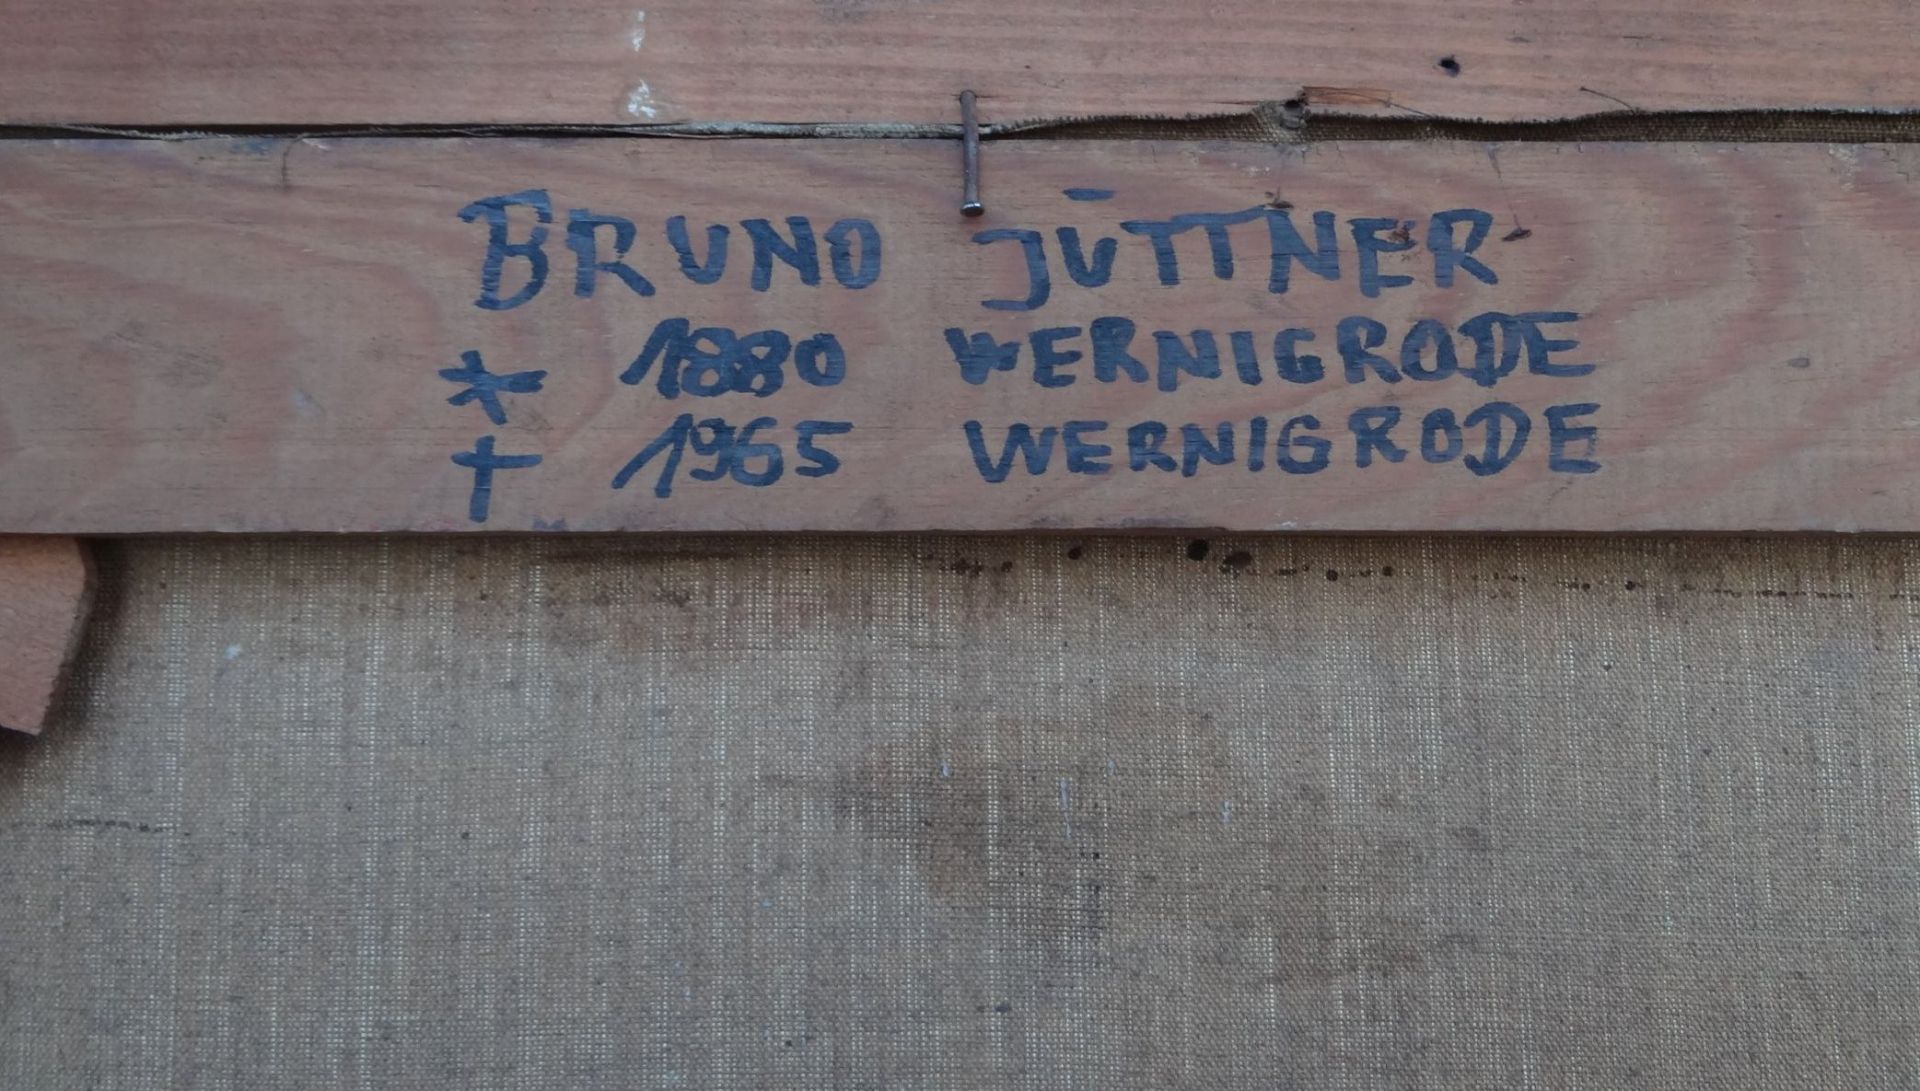 BRUNO JÜTTNER
* 1880 WERNIGRODE
† 1965 WERNIGRODE